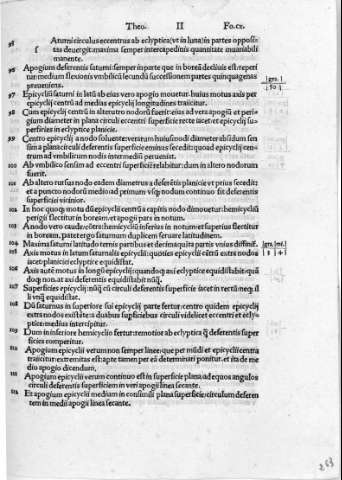 Theo. II Fo.cx.
95 Aturni circulus eccentrus ab ecliptica
manente.
96 Apogium deferentis saturni semper in parte que in boreã declinis est: reperi
tur medium flexionis vmbilicũ secundũ successionem partes quinquagenas
preueniens. |gra.|
|50|
97 Epicyclũ saturni in latũ ab eius vero apogio mouetur: huius motus axis per
epicyclij centrũ ad medias epicyclij longitudines traijcitur.
98 Cum epicyclij centrũ in alterutro nodorũ fuerit: eius ad vera apogiũ et peri-
gium diameter in plana circuli eccentri superficie recte iacet et epicyclij su-
perficies in ecliptice planicie.
99 Centro epicyclij a nodo soluente
sim a plana circuli deferentis superficie eminus secedit: quoad epicyclij cen-
trum ad vmbilicum nodis intermediũ peruenist.
100 Ab vmbilico sensim ad eccentri superficiẽ relabitur: dum in altero nodorum
fuerit.
101 Ab altero rursus nodo eadem diametrus a deferẽtis planicie vt prius secedit:
et a puncto nodorũ medio ad primum vsq̃ nodum continuo sit deferentis
superficiei vicinior.
102 In hoc quoq̃ motu dũ epicyclij centrũ a capitis nodo dimouetur: hemicyclũ
perigij flectitur in boream. et apogij pars in notum.
103 A nodo vero caude, cõtra: hemicyclũ inferius in notum et superius flectitur
in boream, patet ergo saturnum duplicem seruare latitudinem.
104 Maxima saturni latitudo ternis partibus et decima quita partis vnius diffinit̃. |gra.|mi.|
|3|4|
105 Axis motus in latum saturnalis epicyclij: quoties epicyclij cẽtrũ extra nodos
iacet: planiciei ecliptice equidistat.
106 Axis autẽ motus in longũ epicyclij: quandoq̃ axi ecliptice equidistabit: quã
doq̃ non. at axi deferentis equidistabit nũq̃.
107 Superficies epicyclij: nũq̃ cũ circuli deferentis superficie iacet in rectũ neq̃ il
li vnq̃ equidistat.
108 Dũ saturnus in superiore sui epicyclij parte fertur: centro quidem epicyclij
extra nodos existẽte: a duabus supficiebus circuli videlicet eccentri et ecly-
ptice medius intercipitur.
109 Dum in inferiore hemicyclio fertur: remotior ab ecliptica q̃ deferentis super
ficies comperitur.
110 Apogium epicyclij verum non semper linee: que per mũdi et epicyclij centra
traijcitur: extremitas est: apte tamen per eã determinari ponitur. et ita de me
dio apogio dicendum.
111 Apogium epicyclij verum continuo est in superficie plana ad equos angulos
circuli deferentis superficiem in veri apogij linea secante.
112 Et apogium epicyclij medium in consimili plana superficie: circulum deferen
tem in medij apogij linea secante.